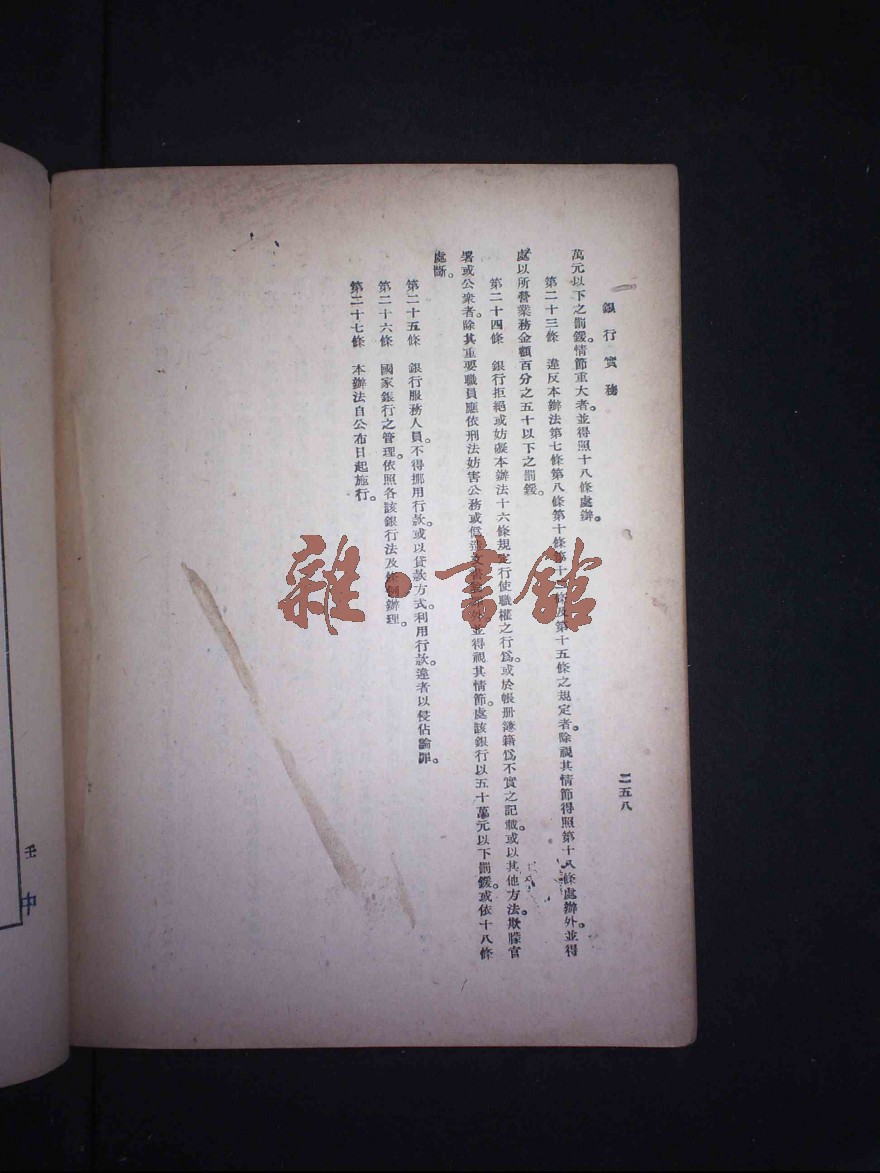 銀行實務
二五八
萬元以下之罰鍰。情節重大者。並得照十八條處辦。
第二十三條　違反本辦法第七條第八條第十條第十 第十五條之規定者除視其情節得照第十八條處辦外。並得
處以所營業務金額百分之五十以下之罰鍰。
第二十四條　銀行拒絕或妨礙本辦法十六條規定行使職權之行爲。或於帳册簿籍爲不實之記載。或以其他方法。欺朦官
署或公衆者。除其重要職員應依刑法妨害公務或僞造文書 外並得視其情節。處該銀行以五十萬元以下罰鍰。或依十八條
處斷。
第二十五條　銀行服務人員。不得挪用行款。或以貸款方式。利用行款。違者以侵佔論罪。
第二十六條　國家銀行之管理。依照各該銀行法及條例辦理。
第二十七條　本辦法自公布日起施行。
雜·書館
壬
中